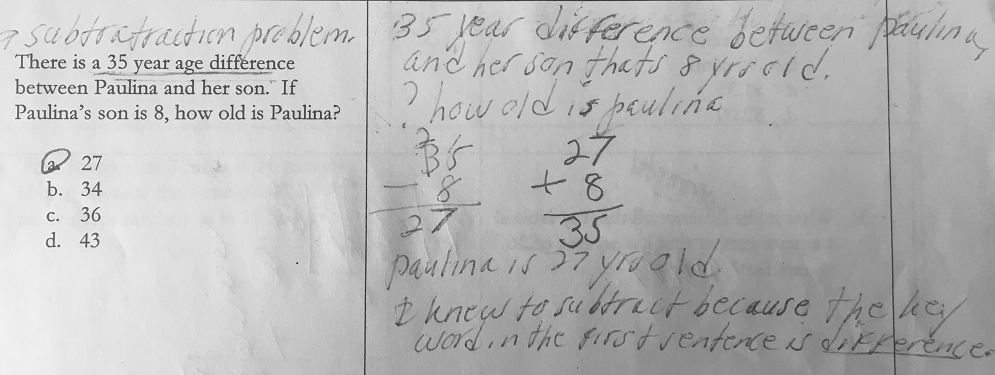 ? subtratraction problem.
There is a 35 year age difference
between Paulina and her son. If
Paulina's son is 8, how old is Paulina?
a. 27
b. 34
c. 36
d. 43
35 year difference between Paulina,
and her son thats 8 yrs old.
? how old is paulina
2
35
- 8
27
27
+ 8
35
paulina is 27 yrs old.
I knew to subtract because the key
word in the first sentence is difference.